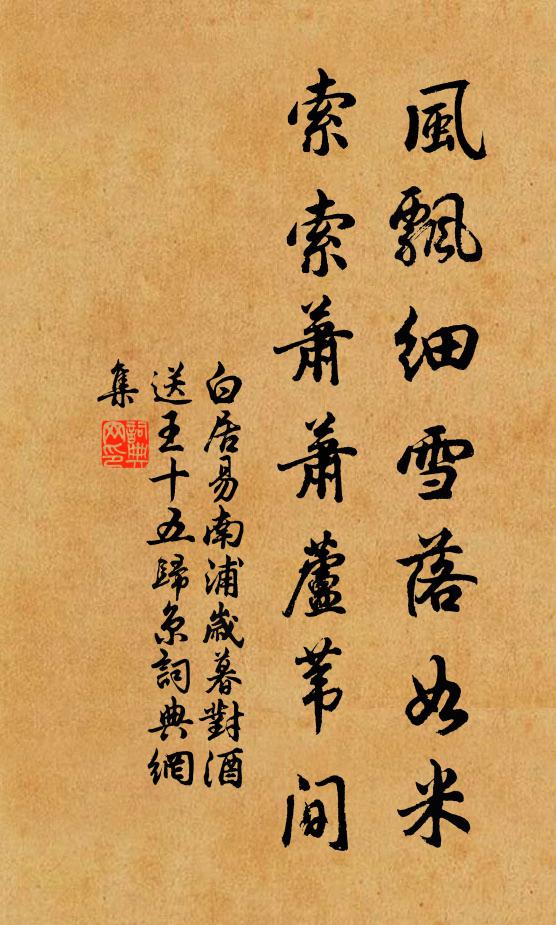 風飄細雪落如米
索索蕭蕭蘆葦间
白居易南浦歲暮對酒
送王十五歸京詞典網
集
詞典
网印